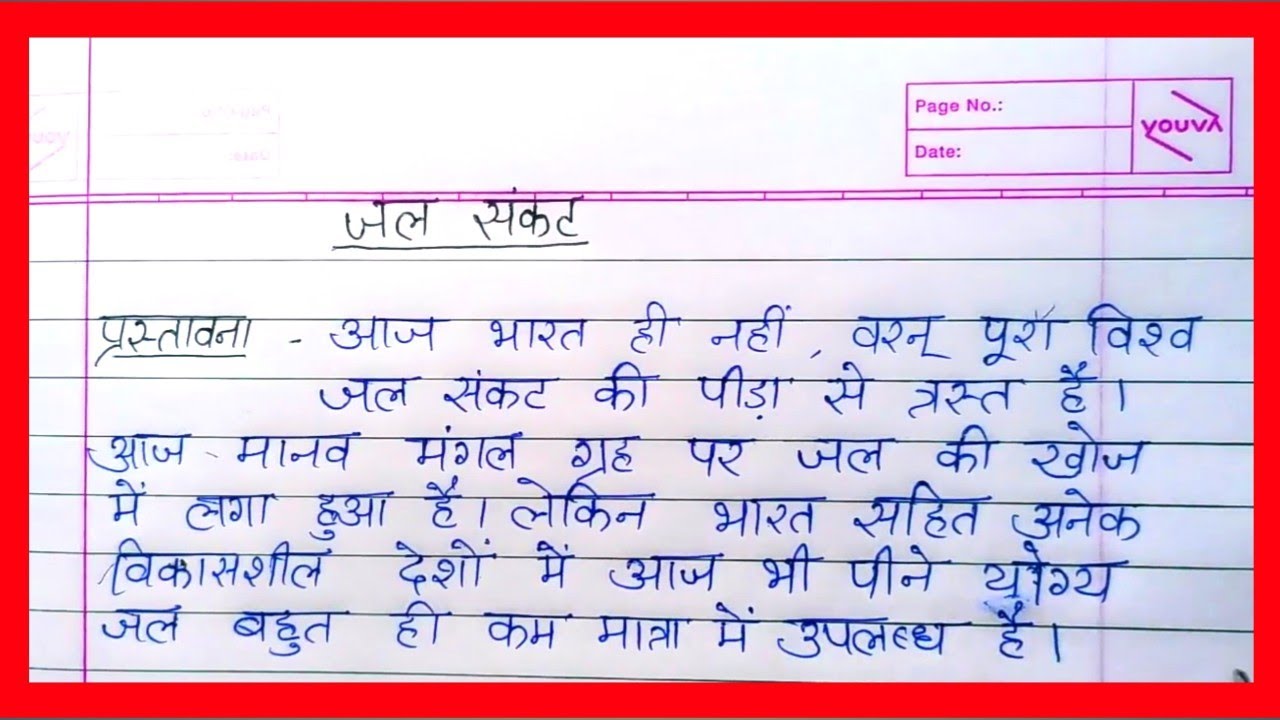 Page No.:
Date:
youva
जल संकट
प्रस्तावना - आज भारत ही नहीं, वरन् पूरा विश्व
जल संकट की पीड़ा से त्रस्त है।
आज मानव मंगल ग्रह पर जल की खोज
में लगा हुआ है। लेकिन भारत सहित अनेक
विकासशील देशों में आज भी पीने योग्य
जल बहुत ही कम मात्रा में उपलब्ध है।